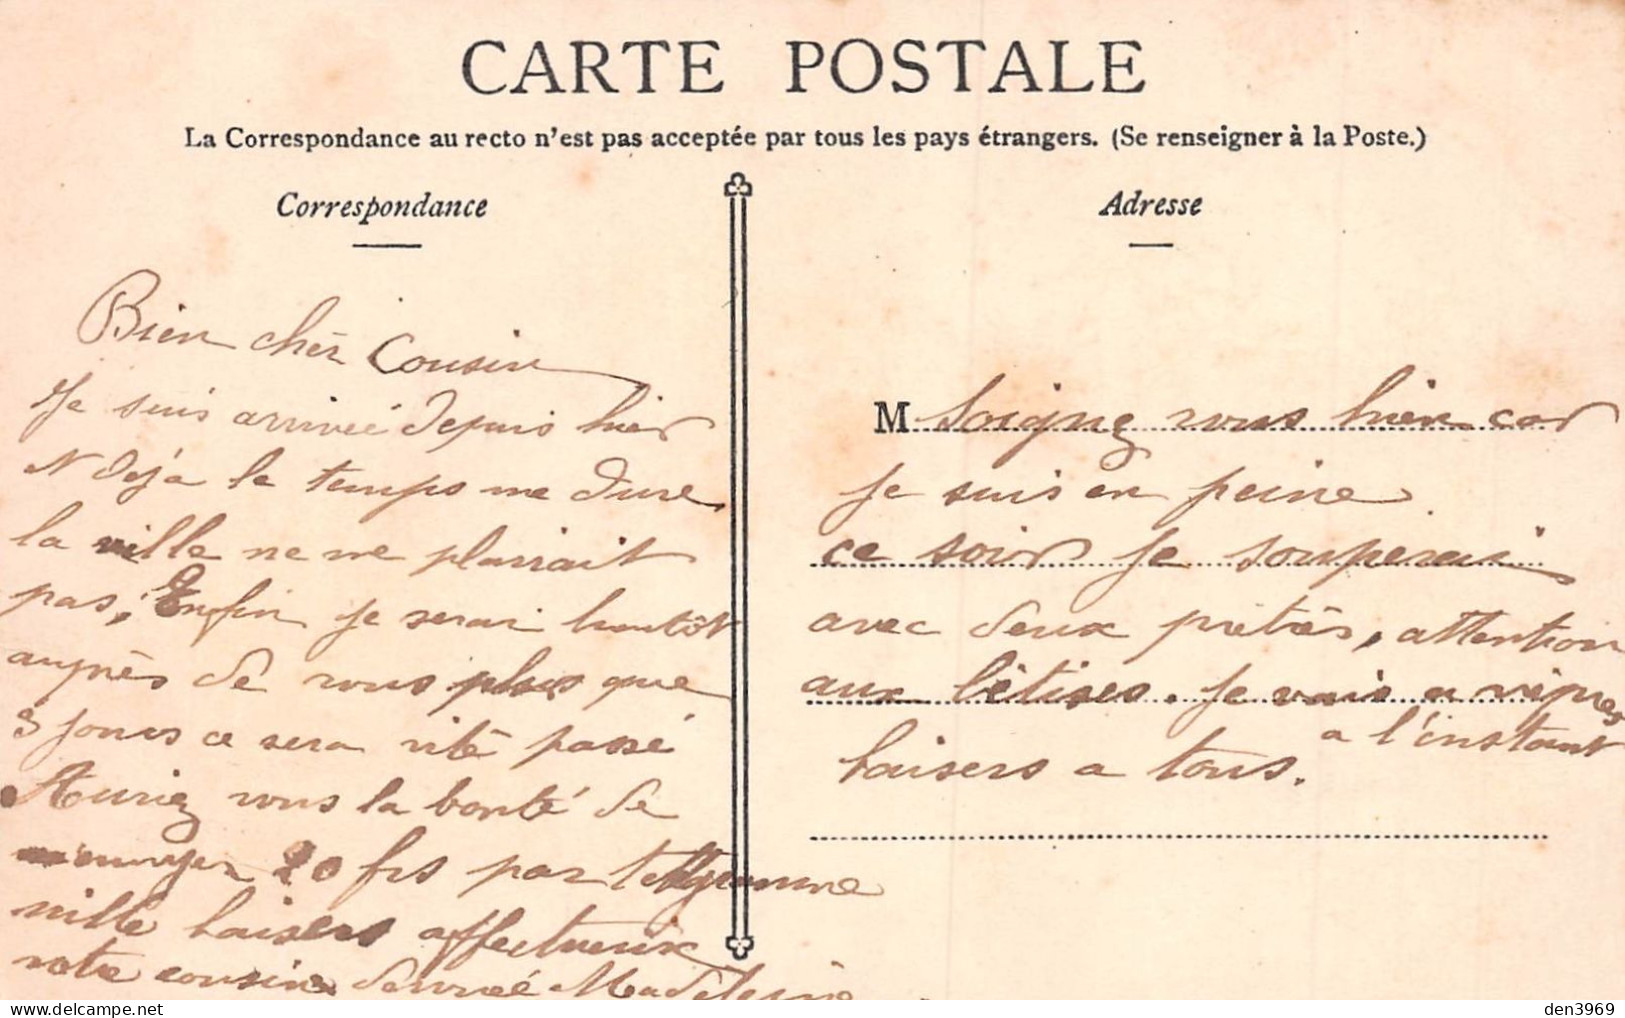 CARTE POSTALE
La Correspondance au recto n'est pas acceptée par tous les pays étrangers. (Se renseigner à la Poste.)
Correspondance
Adresse
Bien cher Cousin
Je suis arrivée depuis hier
déja le temps me dure
la ville ne me plairait
pas, Enfin je serai bientôt
auprès de vous plus que
3 jours ce sera vite passé
Auriez vous la bonté de
m'envoyer 20 frs par telegramme
mille baisers affectueux
votre cousine Madeleine
M Soignez vous bien car
je suis en peine
ce soir je souperai
avec deux prêtres, attention
aux bêtises. Je vais a vêpres
a l'instant
baisers a tous.
den3969